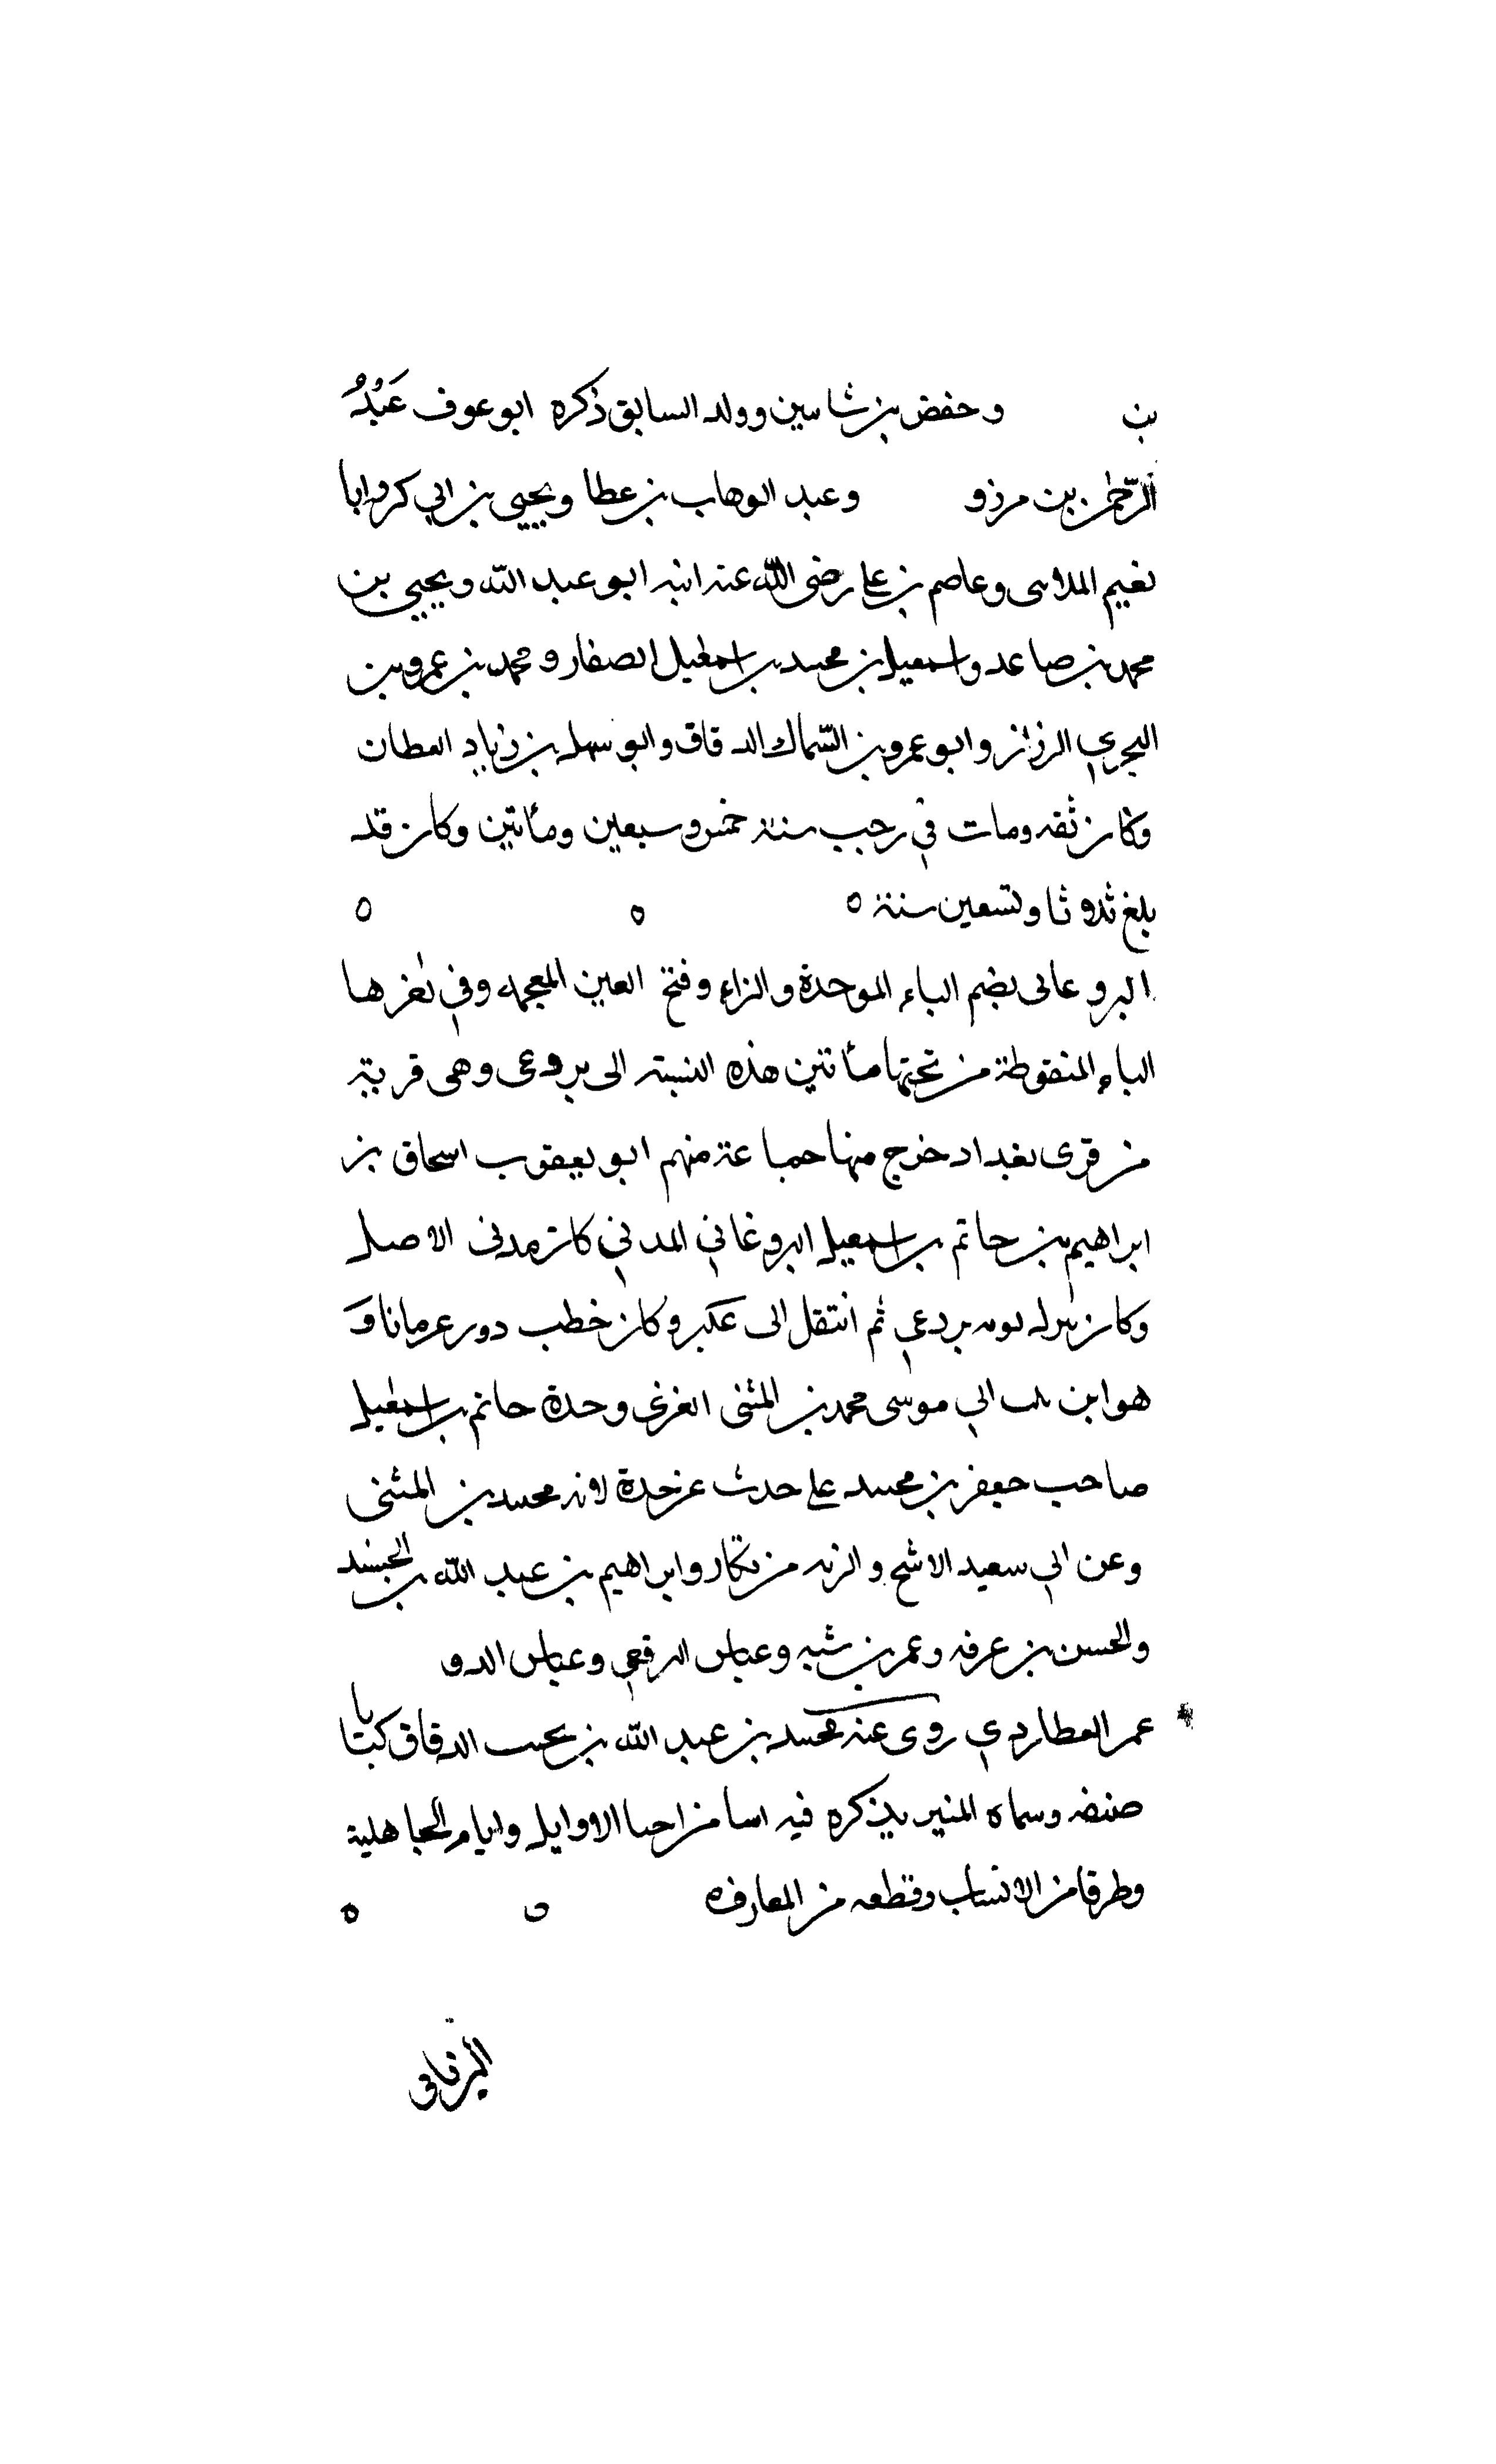 بن وحفض بن شاسين وولد السابق ذكره ابو عوف عَبْدُ
الرّحمن بن مرزو وعبد الوهاب بن عطا ويحيى بن ابي كر وابا
نعيم الملاسى وعاصم بن على رضى الله عنه ابنه ابو عبد الله ويحيى بن
محمد بن صاعد واسمعيل بن محمد بن اسمعيل الصفار ومحمد بن عمرو بن
البحري الرزاز وابو عمرو بن السّماك الدقاق وابو سهل بن زياد العطان
وكان ثقه ومات في رجب سنة خمس وسبعين ومأتين وكان قد
بلغ ثلاوثا وتسعين سنة ه ه ه
البروعانى بضم الباء الموحدة والزاء وفتح العين المعجمه وفي
الباء المنقوطة من تحتها مأتين هذه النسبة الى بروعى وهى قرية
من قرى بغداد خرج منها جماعة منهم ابو يعقوب اسحاق بن
ابراهيم بن حاتم بن اسمعيل البروغاني المدني كان مدنى الاصل
وكان بردعي ثم انتقل الى عكبر وكان خطب دور عرمانا وَ
هو ابن ابي موسى محمد بن المثنى الغزى وحدة حاتم بن اسمعيل
صاحب جعفر بن محمد على حدث عن حدة لانه محمد بن المثنى
وعن ابي سعيد الاشج والزبه من بكار وابراهيم بن عبد الله بن الجنيد
والحسن بن عرفه وعمر بن شبه وعباس الرقعي وعباس الدو
عمر العطاردي روى عنه محمد بن عبد الله بن الدقاق كتابا
صنفه وسماه المنير يذكره فيه اسا من احبا الاوايل وايام الجاهلية
وطرفا من الانساب وقطعه من المعارف ه ه ه
البرقانى